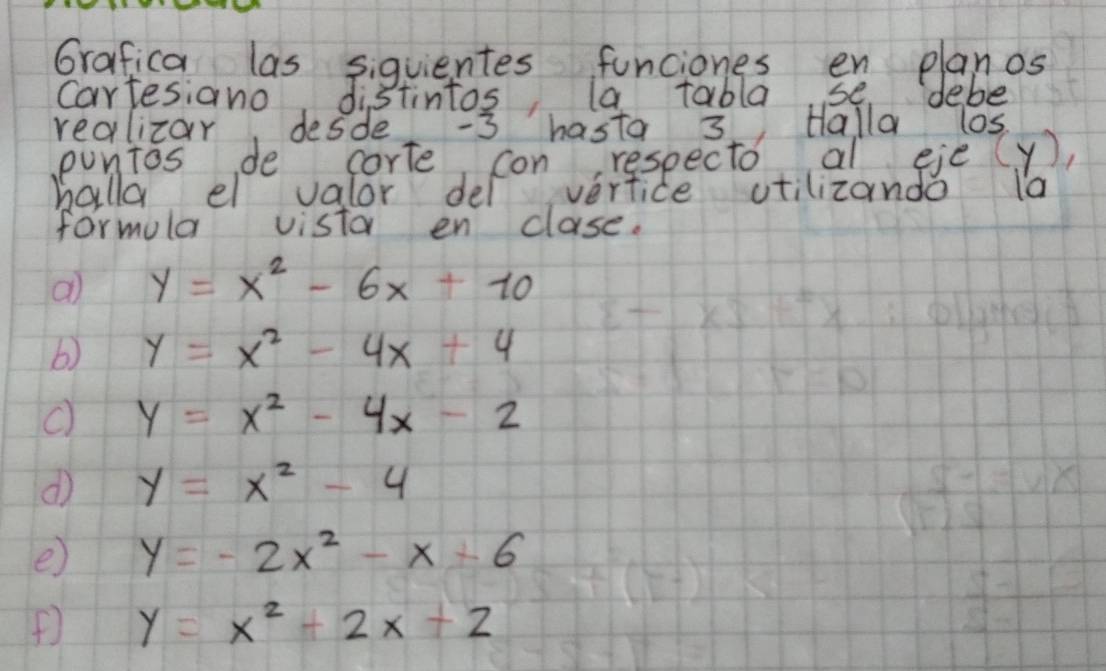 Grafica las siguientes funciones en planos
cartesiano distintos, la tabla se debe
realizar, desde -3 hasta 3, Halla los
puntos de corte con respecto al eje (y),
halla el valor del vértice utilizando la
formula vista en clase.
a) y = x² - 6x + 10
b) y = x² - 4x + 4
c) y = x² - 4x - 2
d) y = x² - 4
e) y = - 2x² - x + 6
f) y = x² + 2x + 2